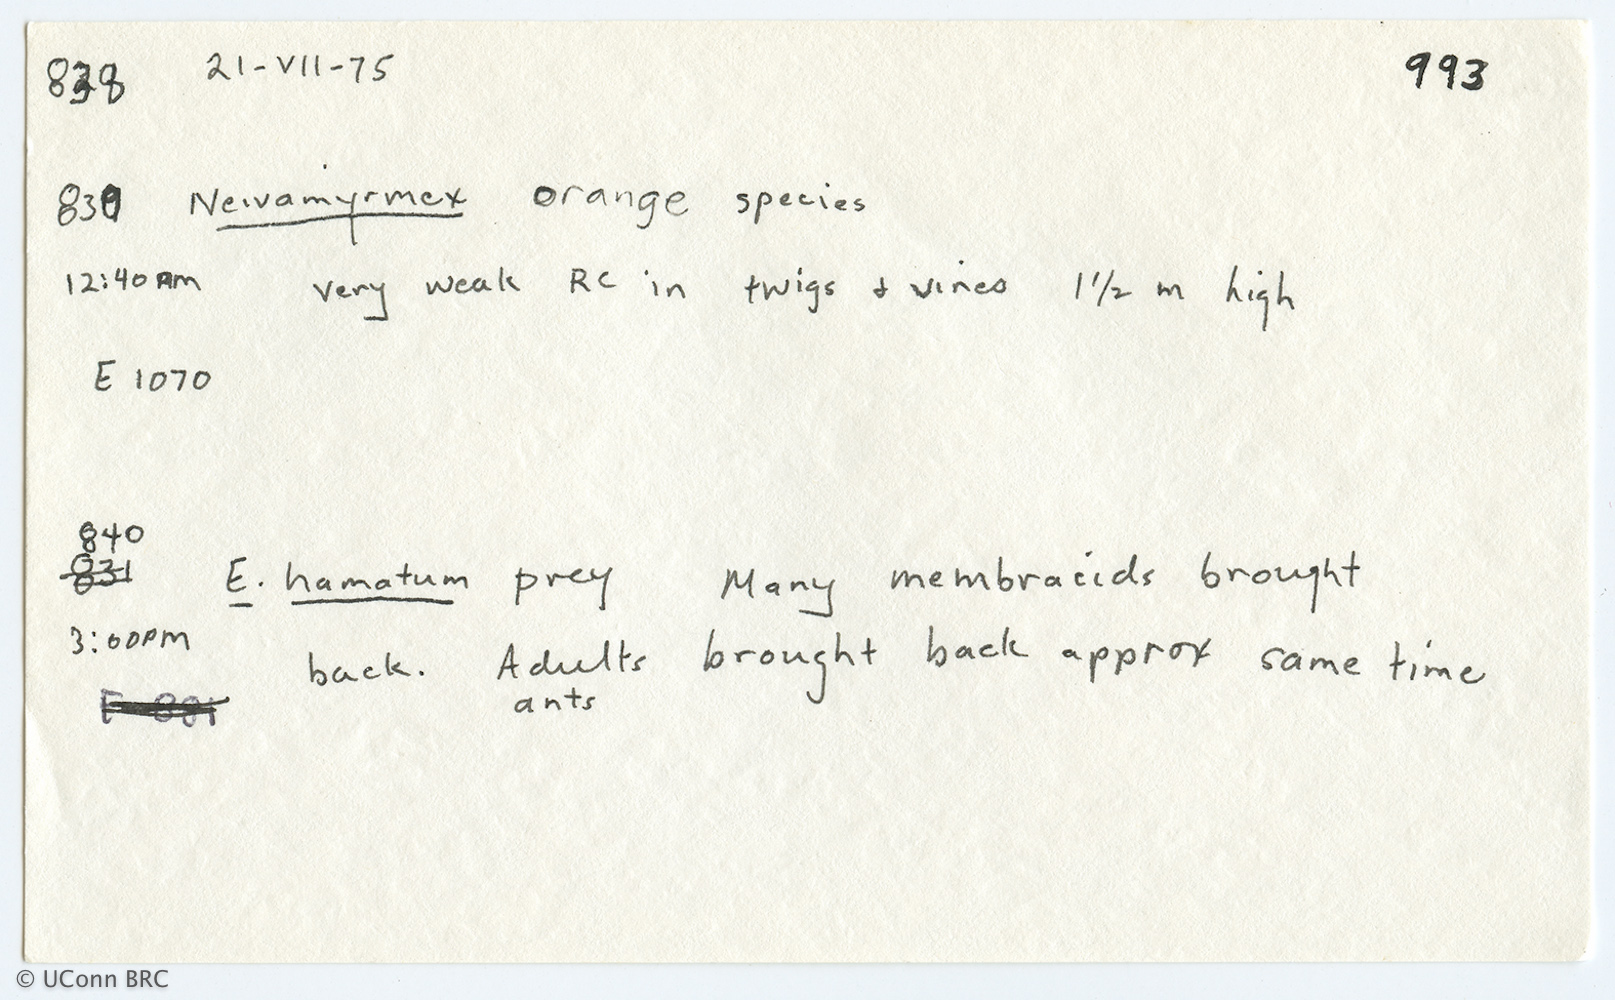 838 21-VII-75 993
839 Neivamyrmex orange species
12:40 PM very weak RC in twigs & vines 1 1/2 m high
E 1070
840
831 E. hamatum prey Many membracids brought
3:00PM back. Adults brought back approx same time
ants
© UConn BRC